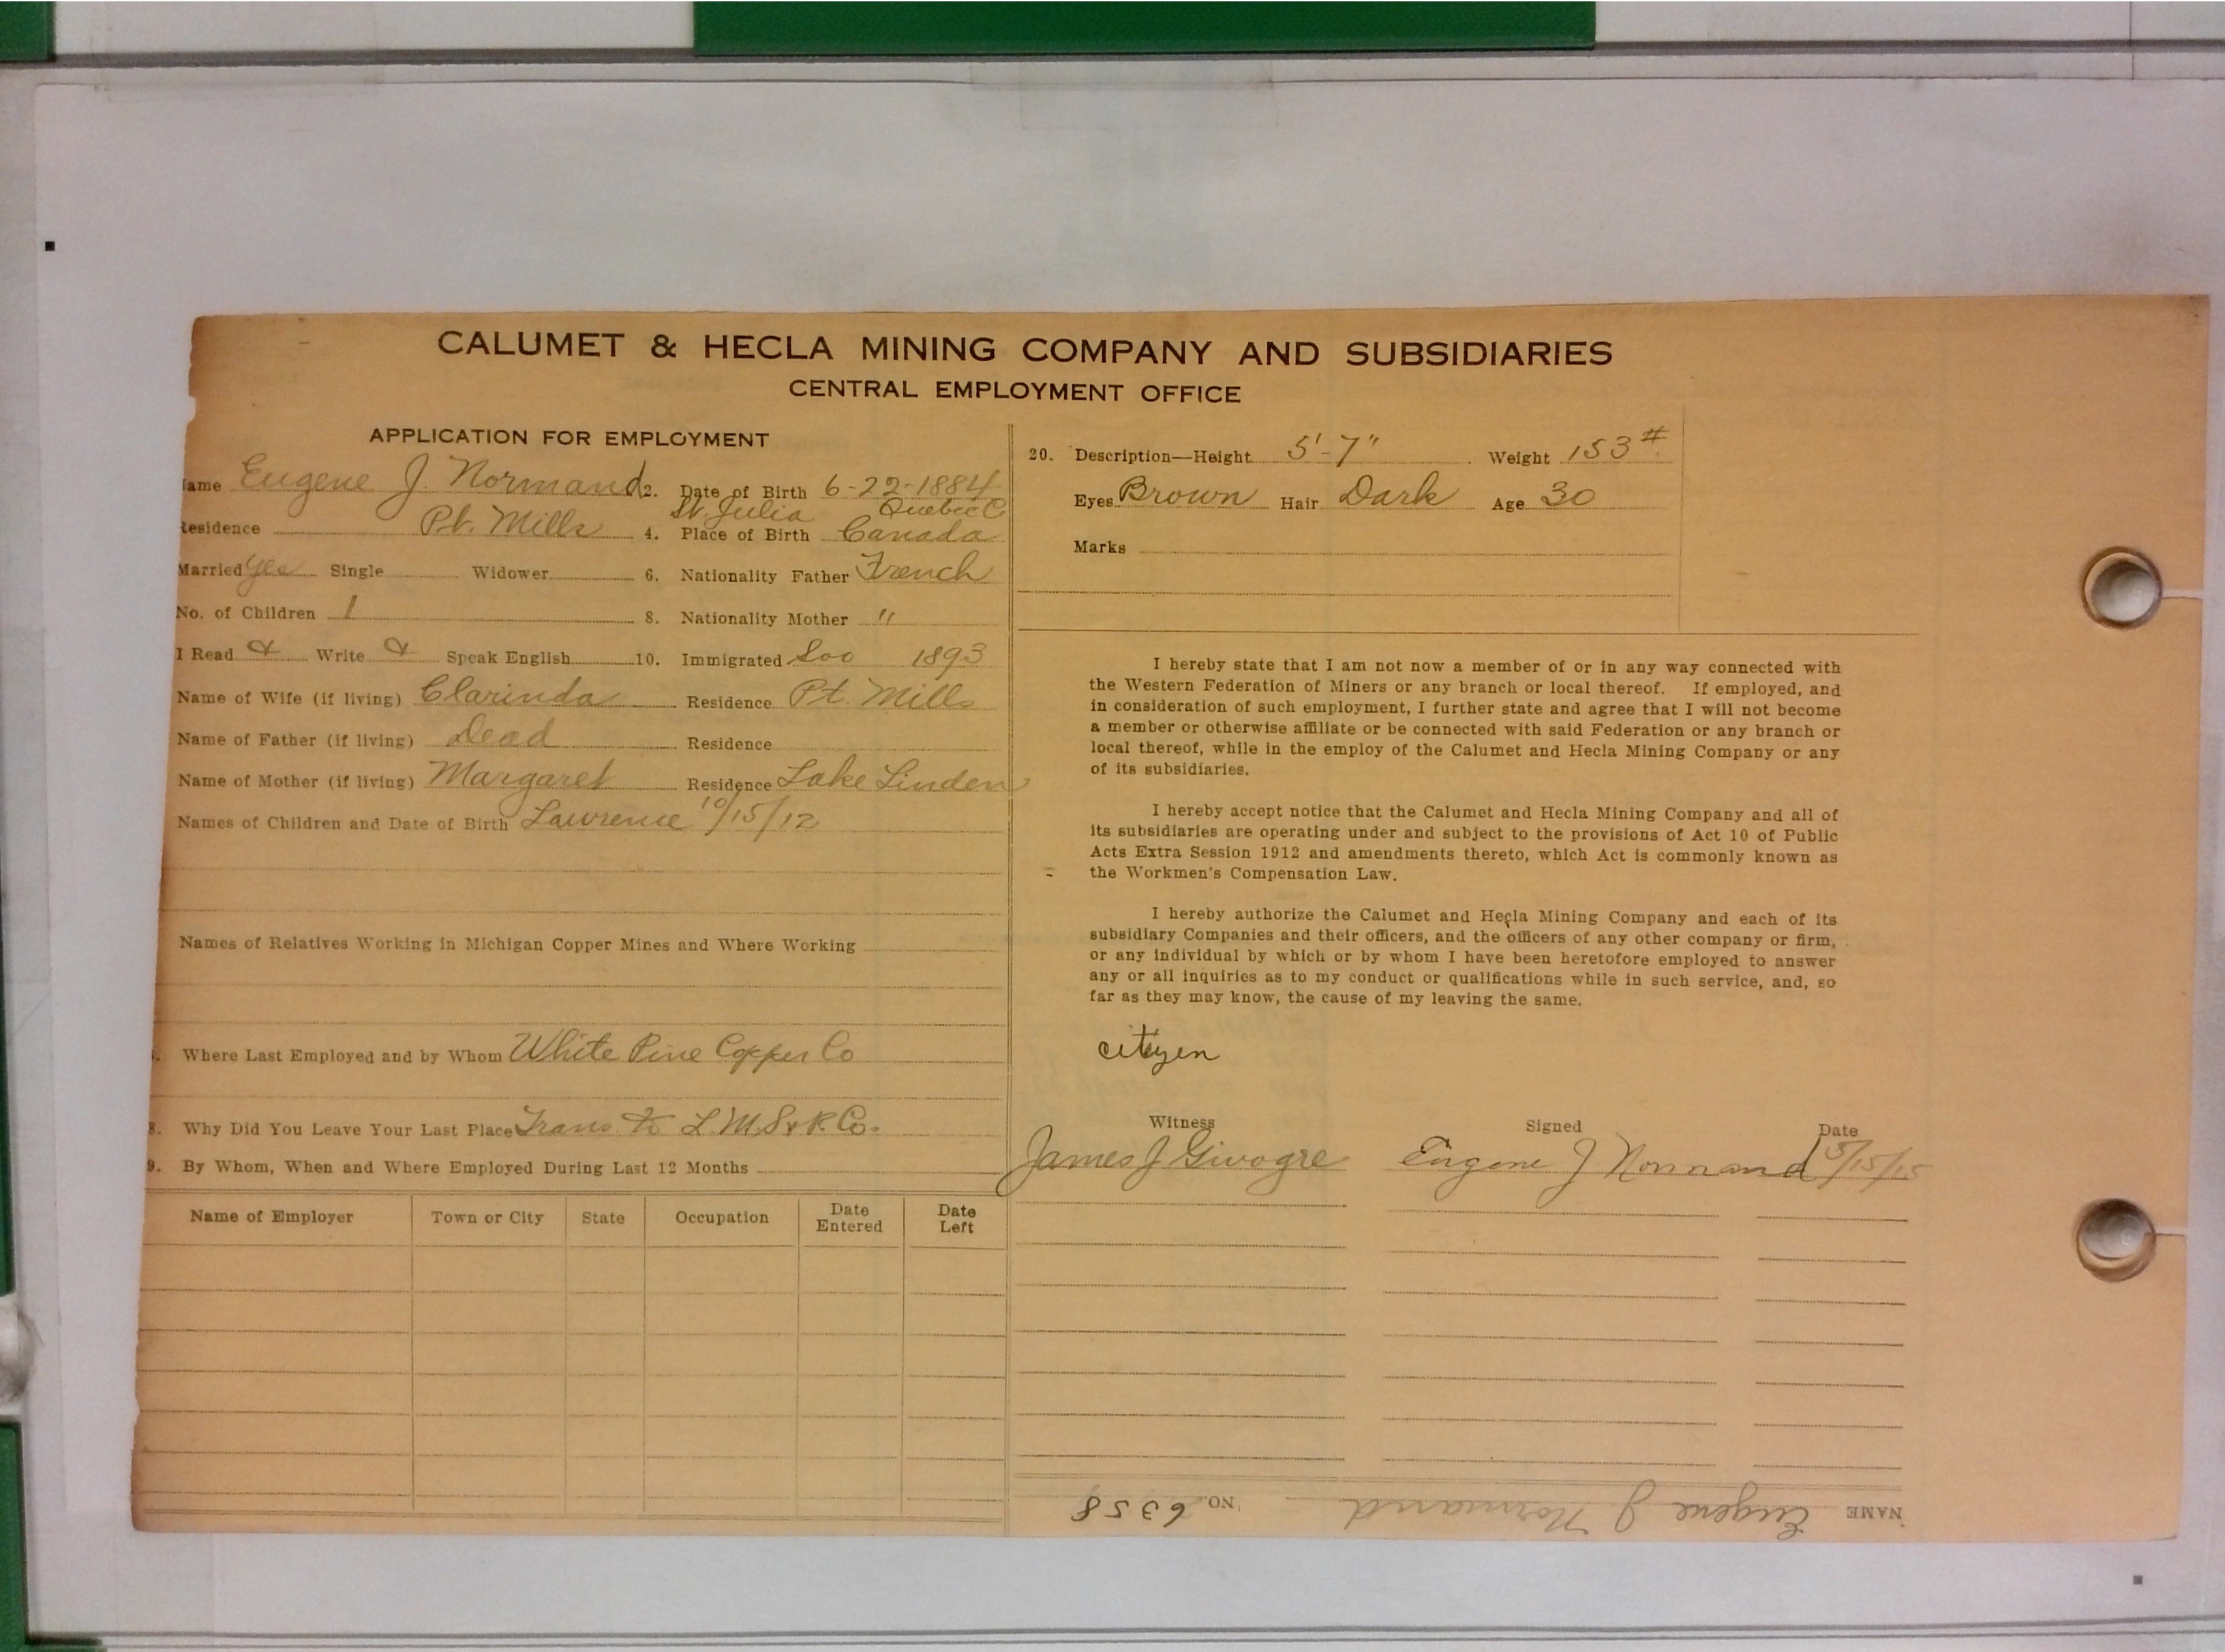 CALUMET & HECLA MINING COMPANY AND SUBSIDIARIES
CENTRAL EMPLOYMENT OFFICE
APPLICATION FOR EMPLOYMENT
ame Eugene J. Normand 2. Date of Birth 6-22-1884
St. Julia Quebec C.
Residence Pt. Mills 4. Place of Birth Canada
Married yes Single Widower 6. Nationality Father French
No. of Children 1 8. Nationality Mother "
I Read & Write & Speak English 10. Immigrated Soo 1893
Name of Wife (if living) Clarinda Residence Pt. Mills
Name of Father (if living) Dead Residence
Name of Mother (if living) Margaret Residence Lake Linden
Names of Children and Date of Birth Lawrence 10/15/12
Names of Relatives Working in Michigan Copper Mines and Where Working
Where Last Employed and by Whom White Pine Copper Co
8. Why Did You Leave Your Last Place Trans to L.M.S & R. Co.
9. By Whom, When and Where Employed During Last 12 Months
Name of Employer Town or City State Occupation Date Entered Date Left
20. Description—Height 5'-7" Weight 153#
Eyes Brown Hair Dark Age 30
Marks
I hereby state that I am not now a member of or in any way connected with
the Western Federation of Miners or any branch or local thereof. If employed, and
in consideration of such employment, I further state and agree that I will not become
a member or otherwise affiliate or be connected with said Federation or any branch or
local thereof, while in the employ of the Calumet and Hecla Mining Company or any
of its subsidiaries.
I hereby accept notice that the Calumet and Hecla Mining Company and all of
its subsidiaries are operating under and subject to the provisions of Act 10 of Public
Acts Extra Session 1912 and amendments thereto, which Act is commonly known as
the Workmen's Compensation Law.
I hereby authorize the Calumet and Hecla Mining Company and each of its
subsidiary Companies and their officers, and the officers of any other company or firm,
or any individual by which or by whom I have been heretofore employed to answer
any or all inquiries as to my conduct or qualifications while in such service, and, so
far as they may know, the cause of my leaving the same.
citizen
Witness Signed Date
James J Givogre Eugene J Normand 5/15/15
NAME Eugene J Normand NO. 6358